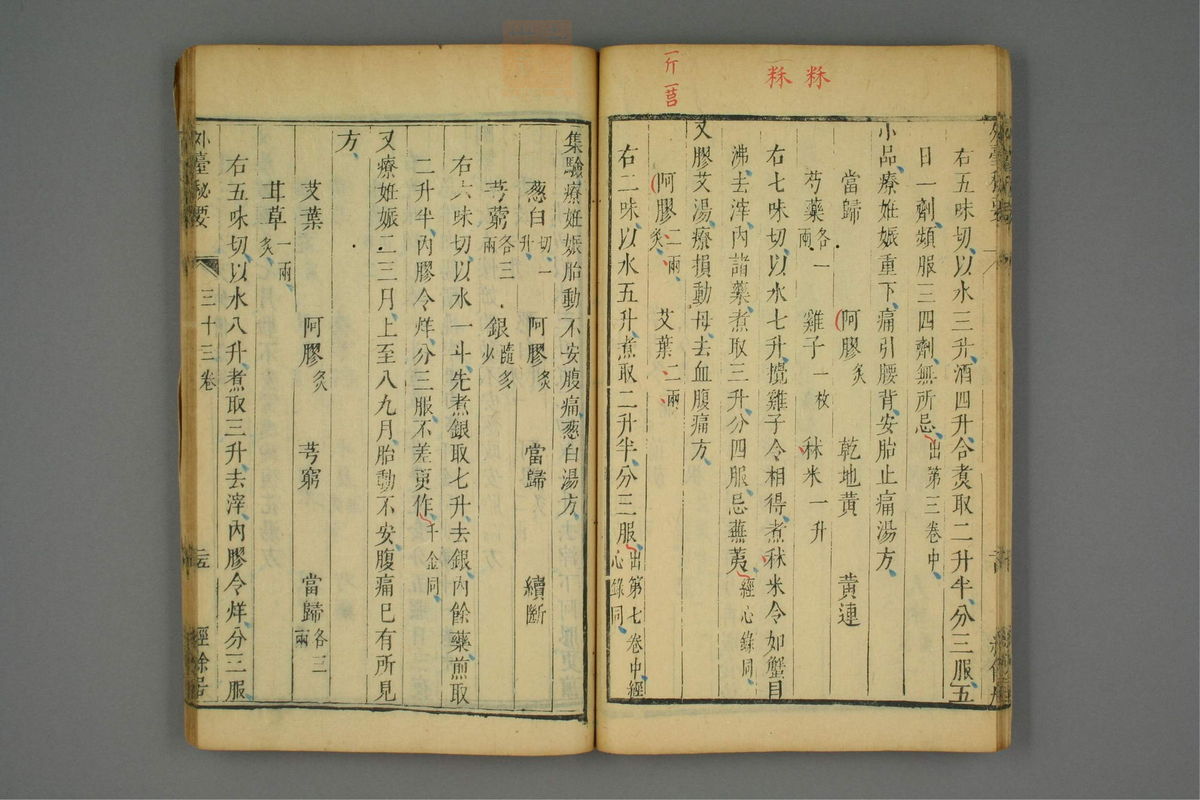 秫 秫
一斤 一莒
右五味切以水三升酒四升合煑取二升半分三服五
日一劑頻服三四劑無所忌出第三卷中
小品療姙娠重下痛引腰背安胎止痛湯方
當歸 阿膠炙 乾地黄 黄連
芍藥各一兩 雞子一枚 秫米一升
右七味切以水七升攪雞子令相得煮秫米令如蟹目
沸去滓内諸藥煮取三升分四服忌蕪荑經心錄同
又膠艾湯療損動母去血腹痛方
阿膠二兩炙 艾葉二兩
右二味以水五升煮取二升半分三服出第七卷中經心錄同
集驗療姙娠胎動不安腹痛葱白湯方
葱白切一升 阿膠炙 當歸 續斷
芎藭各三兩 銀隨多少
右六味切以水一斗先煮銀取七升去銀内餘藥煎取
二升半内膠令烊分三服不差更作千金同
又療姙娠二三月上至八九月胎動不安腹痛已有所見
方
艾葉 阿膠炙 芎窮 當歸各三兩
甘草一兩炙
右五味切以水八升煮取三升去滓内膠令烊分三服
外臺秘要 三十三卷 經餘居